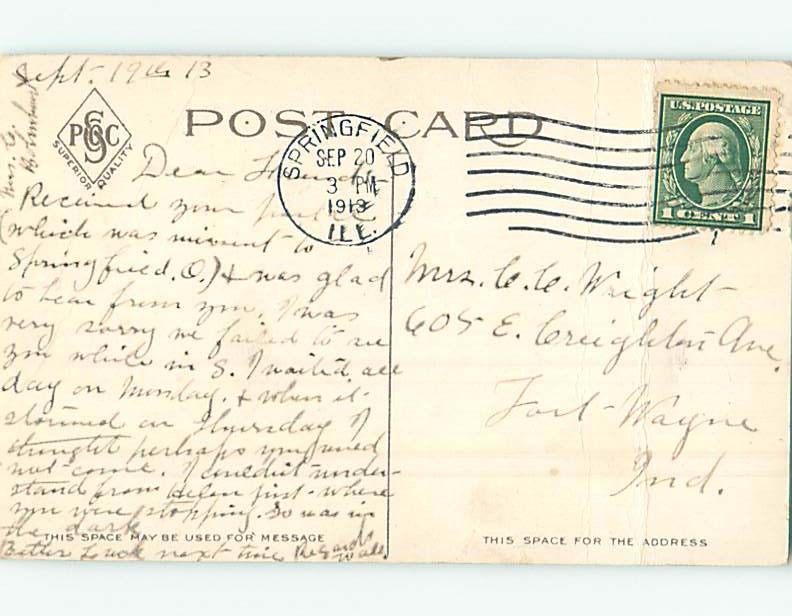 Sept. 19th 13
Mrs. C.
SUPERIOR QUALITY
PGC
POST CARD
SPRINGFIELD
SEP 20
3 PM
1913
ILL.
U.S. POSTAGE
1 CENT 1
Dear Friend
Received your
(which was missent to
Springfield, O.) & was glad
to hear from you. I was
very sorry we failed to see
you while in S. I waited all
day on Monday, & when it
stormed on Thursday I
thought perhaps you
not come. I couldn't under-
stand from Helen just where
you were stopping. so was in
the dark
Better Luck next time Regards
to all.
Mrs. C. C. Wright
605 E. Creighton Ave.
Fort Wayne
Ind.
THIS SPACE MAY BE USED FOR MESSAGE
THIS SPACE FOR THE ADDRESS